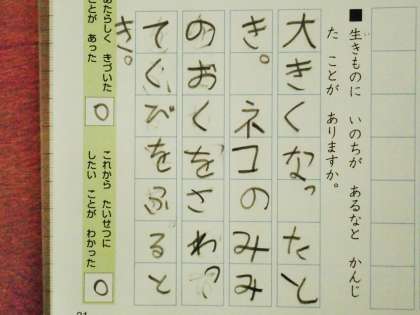 ■ 生きものに いのちが あるなと かんじ
た ことが ありますか。
大きくなったと
き。ネコのみみ
のおくをさわっ
てくびをふると
き。
あたらしく きづいた
ことが あった
○
これから たいせつに
したい ことが わかった
○